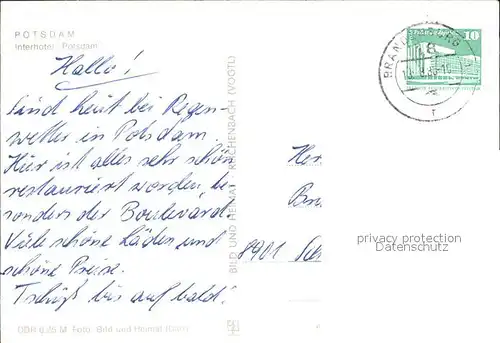 POTSDAM
Interhotel Potsdam
Hallo!
Sind heut bei Regen-
wetter in Potsdam.
Hier ist alles sehr schön
restauriert worden, be
sonders der Boulevard.
Viele schöne Läden und
schöne Preise.
Tschüß bis auf bald!
DDR 0,25 M Foto: Bild und Heimat
BILD UND HEIMAT · REICHENBACH (VOGTL)
10
Her
8901
privacy protection
Datenschutz